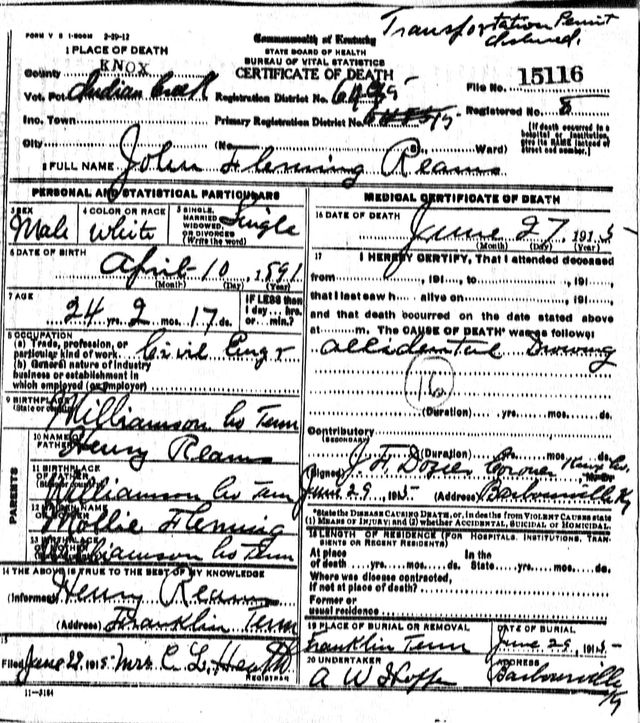 Transportation Permit
FORM V S 1-500M 2-29-12
Commonwealth of Kentucky
STATE BOARD OF HEALTH
BUREAU OF VITAL STATISTICS
CERTIFICATE OF DEATH
1 PLACE OF DEATH
County KNOX
Vot. Pct. Indian Creek Registration District No.
File No. 15116
Inc. Town Primary Registration District No.
Registered No. 8
City (No. St. Ward)
[If death occurred in a hospital or institution, give its NAME instead of street and number.]
2 FULL NAME John Fleming Reams
PERSONAL AND STATISTICAL PARTICULARS
3 SEX Male
4 COLOR OR RACE White
5 SINGLE, MARRIED, WIDOWED, OR DIVORCED (Write the word) Single
6 DATE OF BIRTH April 10, 1891
(Month) (Day) (Year)
7 AGE 24 yrs. 2 mos. 17 ds.
IF LESS than 1 day... hrs. or ... min.?
8 OCCUPATION
(a) Trade, profession, or particular kind of work Civil Engr
(b) General nature of industry business or establishment in which employed (or employer)
9 BIRTHPLACE (State or country) Williamson Co Tenn
PARENTS
10 NAME OF FATHER Henry Reams
11 BIRTHPLACE OF FATHER (State or country) Williamson Co Tenn
12 MAIDEN NAME OF MOTHER Mollie Fleming
13 BIRTHPLACE OF MOTHER Williamson Co Tenn
14 THE ABOVE IS TRUE TO THE BEST OF MY KNOWLEDGE
(Informant) Henry Reams
(Address) Franklin Tenn
15
Filed June 29 1915 Mrs C L Heath
REGISTRAR
11-3184
MEDICAL CERTIFICATE OF DEATH
16 DATE OF DEATH June 27, 1915
(Month) (Day) (Year)
17 I HEREBY CERTIFY, That I attended deceased
from, 191, to, 191,
that I last saw h alive on, 191,
and that death occurred on the date stated above
at m. The CAUSE OF DEATH* was as follows:
accidental
(Duration) yrs. mos. ds.
Contributory (SECONDARY)
(Duration) yrs. mos. ds.
(Signed) J H Dozier Coroner Knox Co.
June 29, 1915 (Address) Barbourville Ky
*State the DISEASE CAUSING DEATH, or, in deaths from VIOLENT CAUSES state
(1) MEANS OF INJURY; and (2) whether ACCIDENTAL, SUICIDAL or HOMICIDAL.
18 LENGTH OF RESIDENCE (FOR HOSPITALS, INSTITUTIONS, TRANSIENTS OR RECENT RESIDENTS)
At place of death yrs. mos. ds. In the State yrs. mos. ds.
Where was disease contracted,
If not at place of death?
Former or
usual residence
19 PLACE OF BURIAL OR REMOVAL Franklin Tenn
DATE OF BURIAL June 29, 1915
20 UNDERTAKER A W Hopper
ADDRESS Barbourville Ky